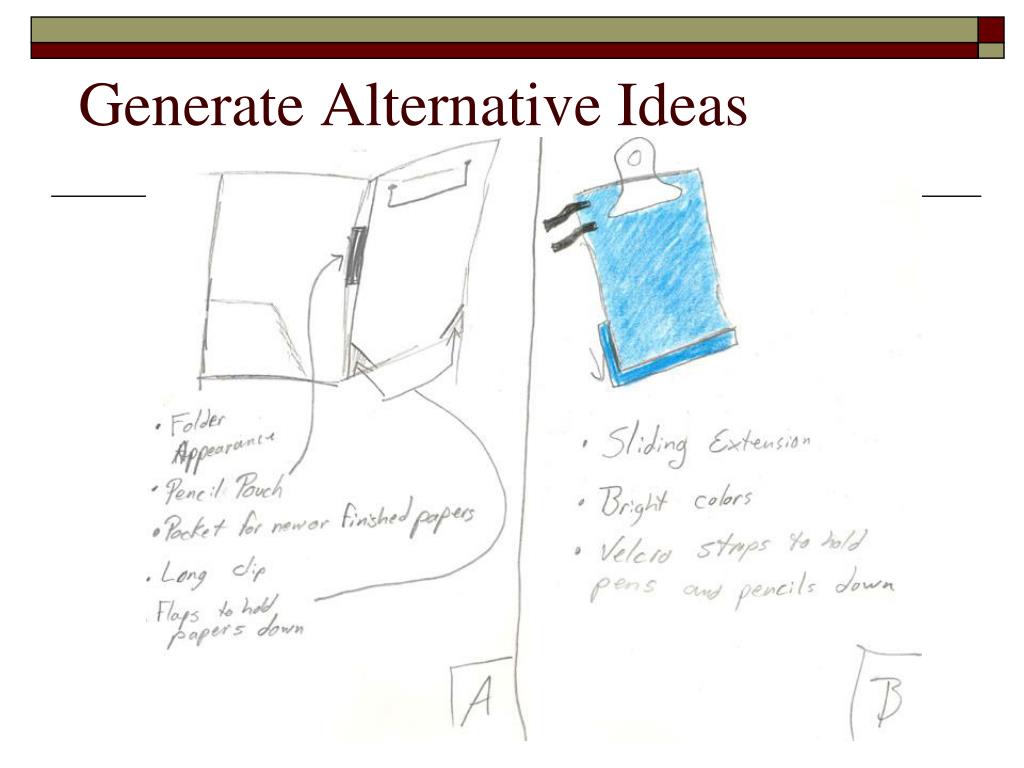 Generate Alternative Ideas
• Folder
Appearance
• Pencil Pouch
• Pocket for new or finished papers
• Long clip
. Flaps to hold
papers down
A
• Sliding Extension
• Bright colors
• Velcro straps to hold
pens and pencils down
B